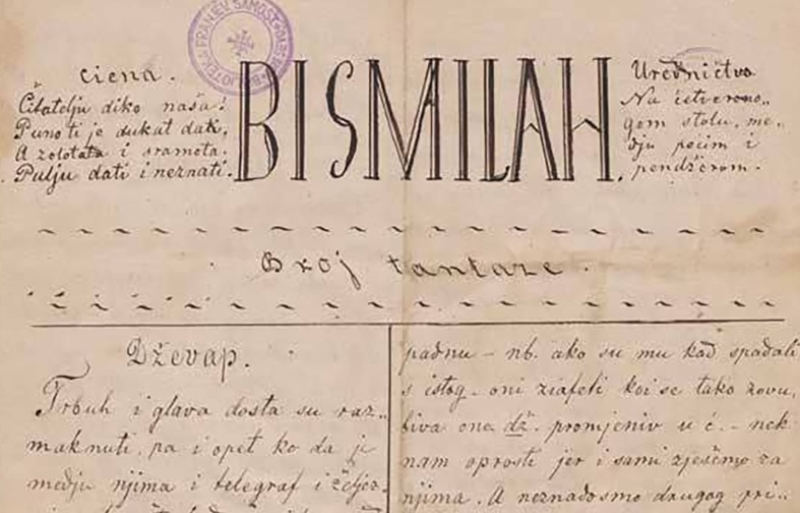 ciena.
Čitatelju diko naša!
Puno ti je dukat dati,
A zolotata i sramota.
Pulju dati i neznati.
BISMILAH.
Uredničtvo
Na četverono„
gom stolu, me„
dju pećim i
pendžerom.
Broj tantaze.
Dževap.
Trbuh i glava dosta su raz„
maknuti, pa i opet ko da je
medju njima i telegraf i željez„
padnu – nb. ako su mu kad spadali
s istog – oni ziafeti koi se tako zovu,
biva ono dž. promjeniv u ć. – nek
nam oprosti jer i sami zješćemo za
njima. A neznadosmo drugog pri„